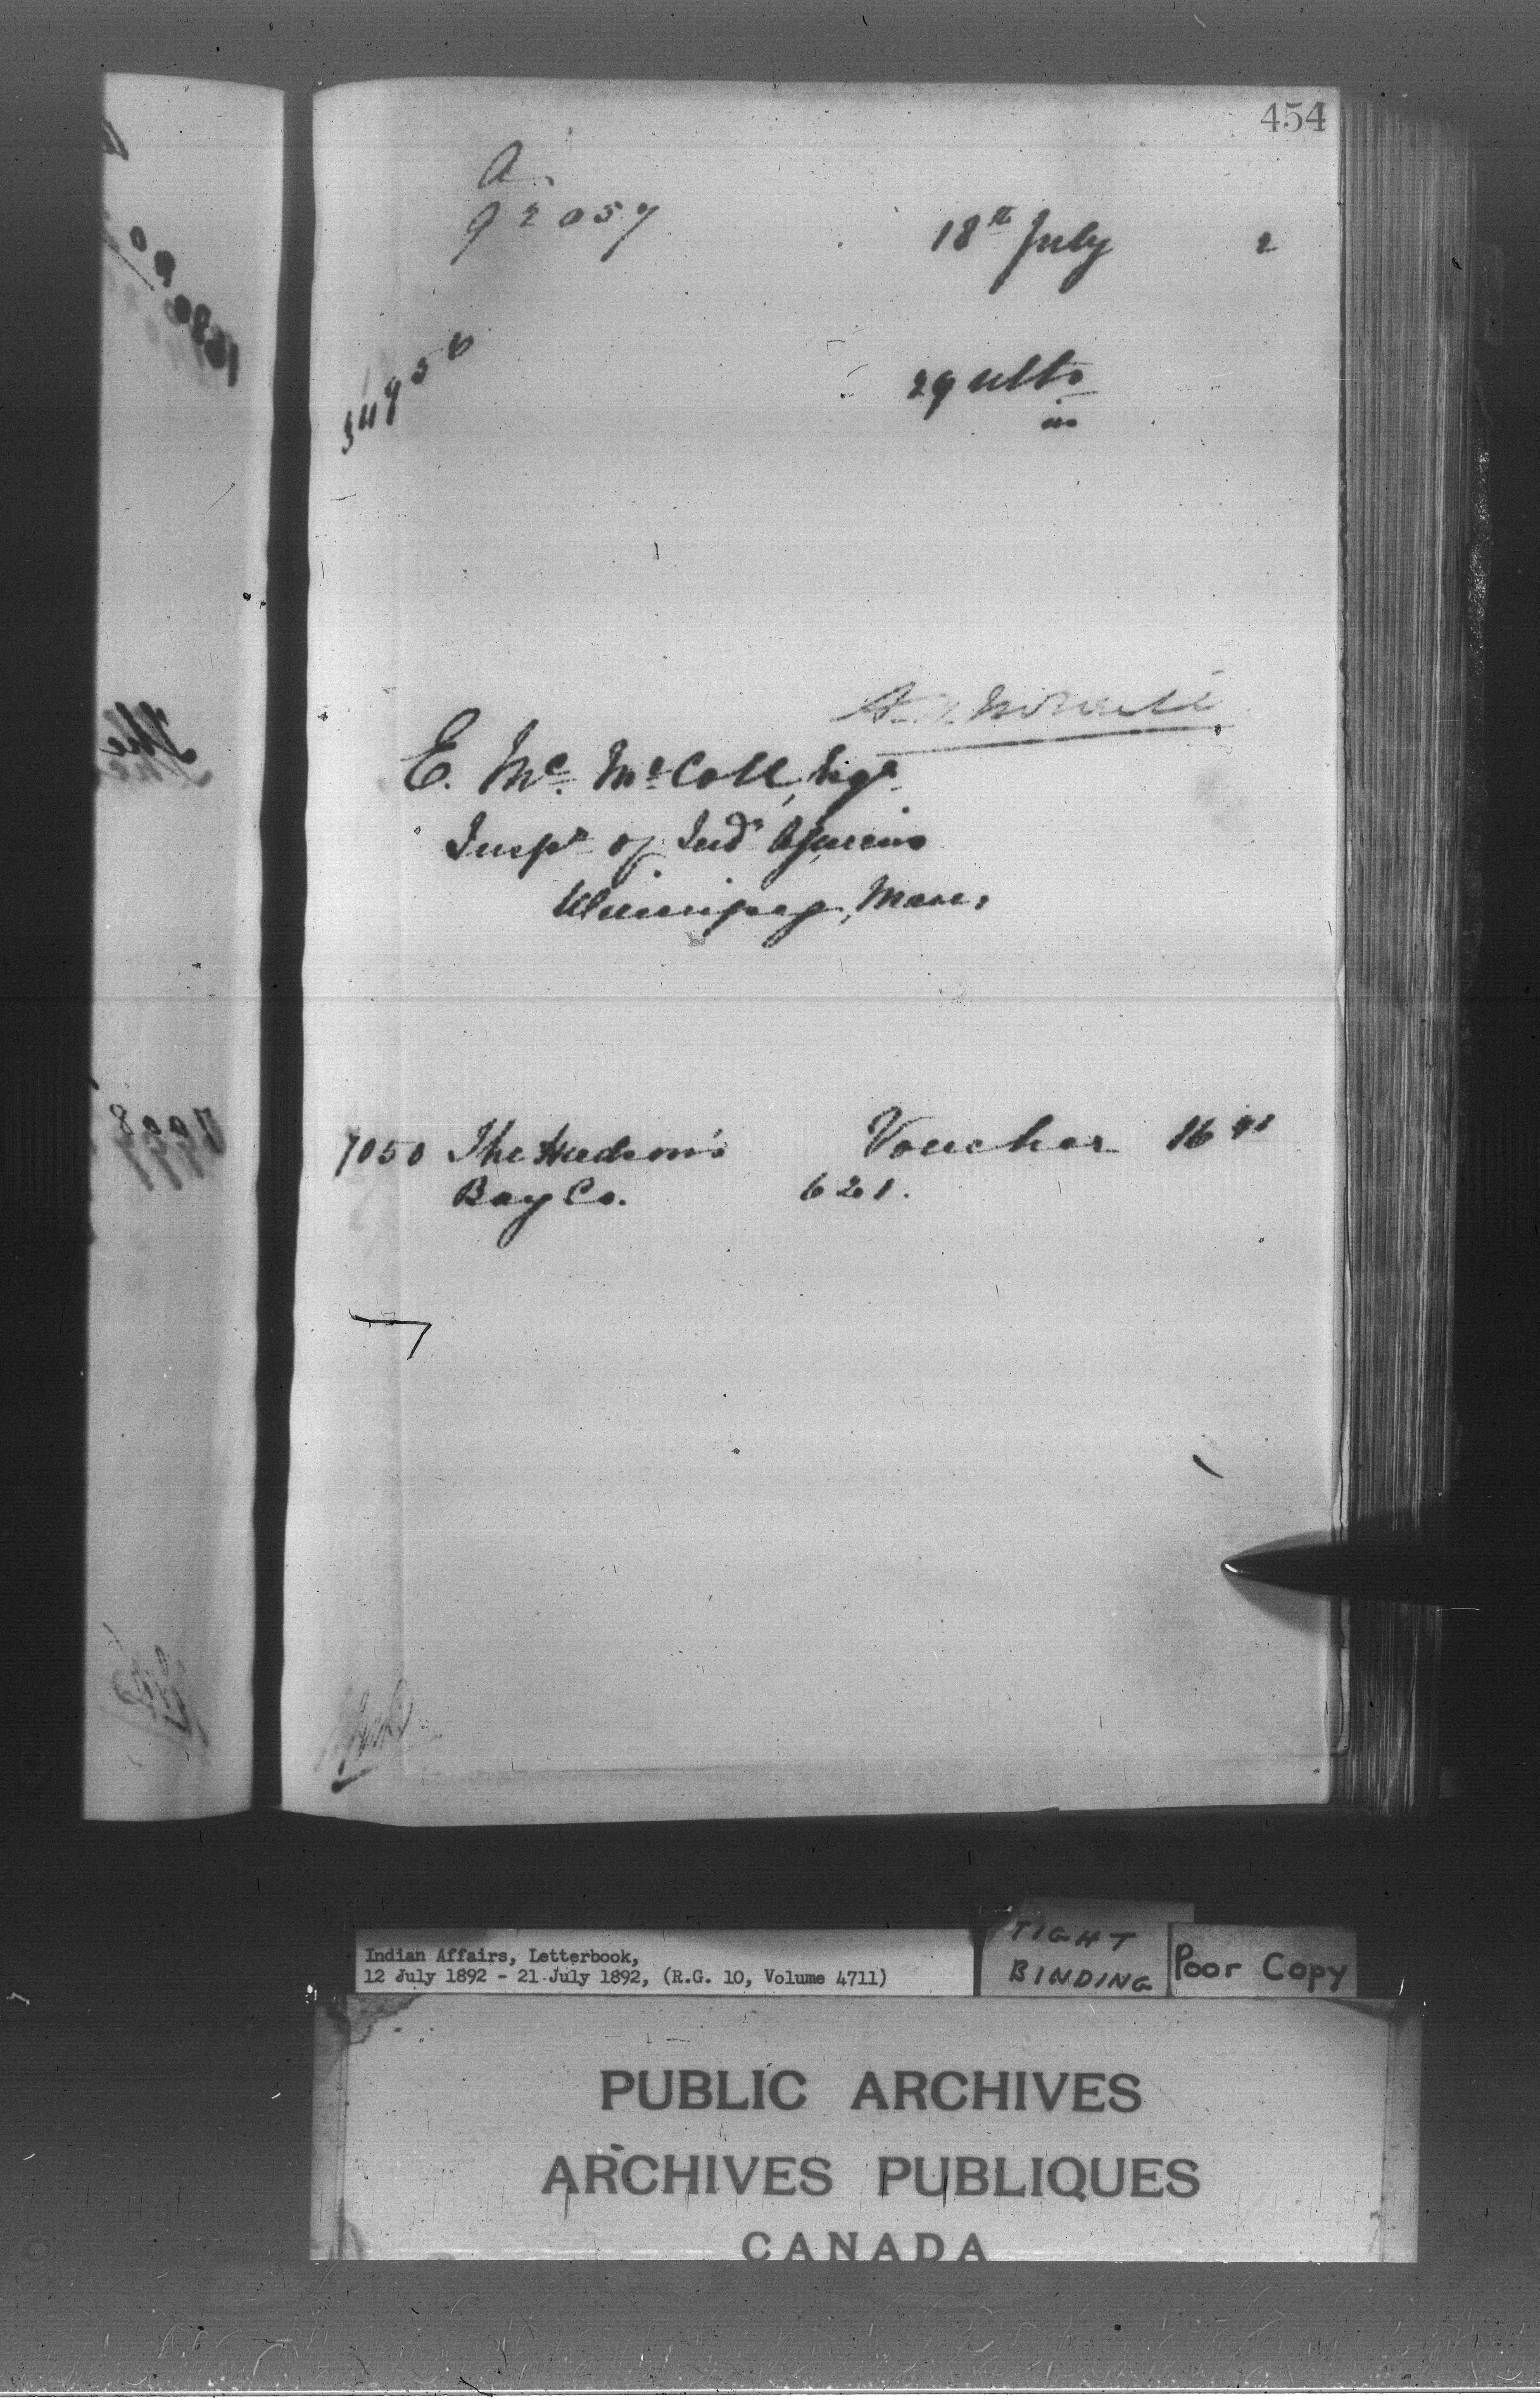 454
a.
92057
18th July 2
34956
29 ulto
in
E. Mc. McColl, Esqr
Inspr of Indn Agencies
Winnipeg, Man.
7050 The Hudson's Voucher 16 91
Bay Co. 621.
The
7008
Indian Affairs, Letterbook,
12 July 1892 - 21 July 1892, (R.G. 10, Volume 4711)
TIGHT
BINDING
Poor Copy
PUBLIC ARCHIVES
ARCHIVES PUBLIQUES
CANADA